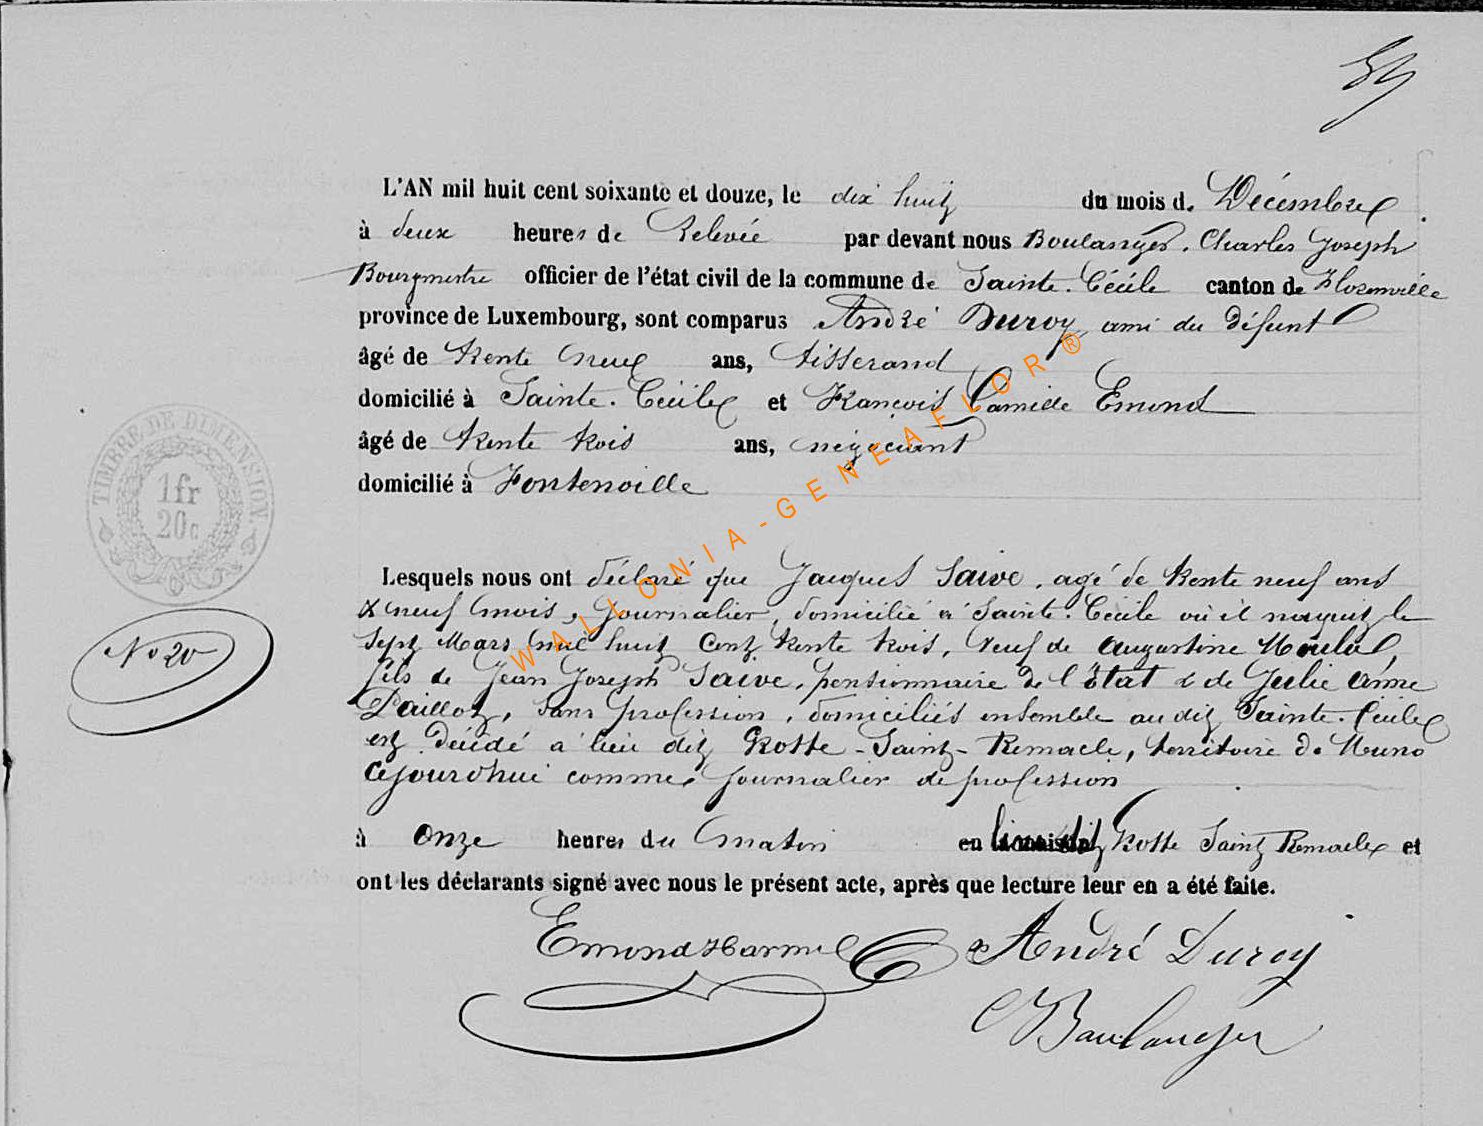 59
L'AN mil huit cent soixante et douze, le dix huit du mois d. Décembre
à deux heures de Relevée par devant nous Boulanger. Charles Joseph
Bourgmestre officier de l'état civil de la commune de Sainte-Cécile canton de Florenville
province de Luxembourg, sont comparus André Duroy ami du défunt
âgé de trente neuf ans, tisserand
domicilié à Sainte-Cécile et François Camille Emond
âgé de trente trois ans, négociant
domicilié à Fontenoille
TIMBRE DE DIMENSION.
1fr
20c
Lesquels nous ont déclaré que Jacques Saive, agé de trente neuf ans
& neuf mois, journalier, domicilié à Sainte-Cécile où il naquit le
Sept Mars mil huit cent trente trois, veuf de Augustine
N° 20
fils de Jean Joseph Saive, pensionnaire de l'État & de Julie Anne
sans profession, domiciliés ensemble au dit Sainte-Cécile
est décédé à lieu dit Rotte-Saint-Remacle, territoire de Muno
Cejourd'hui comme journalier de profession
à Onze heures du matin en lieu dit Rotte Saint Remacle et
ont les déclarants signé avec nous le présent acte, après que lecture leur en a été faite.
Emond Harmel André Duroy
Boulanger
WALLONIA-GENEAFLOR®